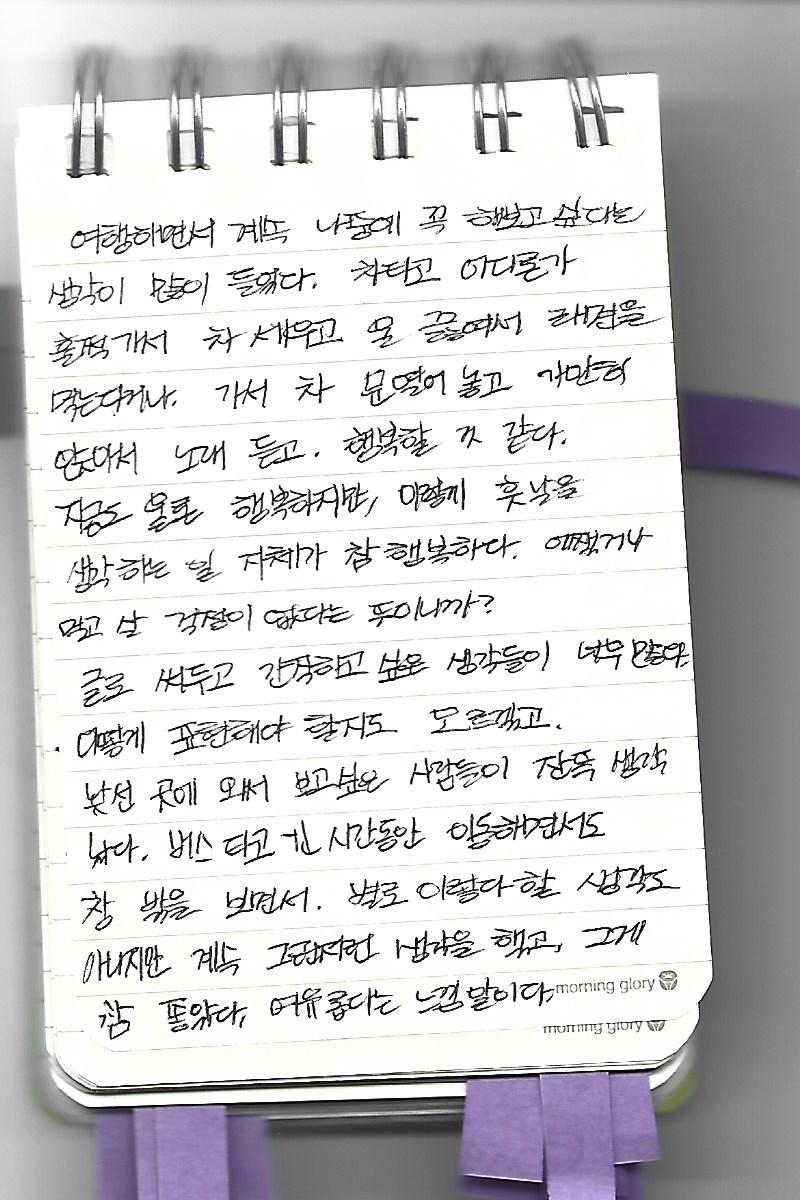 여행하면서 계속 나중에 꼭 해보고 싶다는
생각이 많이 들었다. 차타고 어디론가
훌쩍 가서 차 세우고 물 끓여서 라면을
먹는다거나. 가서 차 문 열어 놓고 가만히
앉아서 노래 듣고. 행복할 것 같다.
지금도 물론 행복하지만, 이렇게 훗날을
생각하는 일 자체가 참 행복하다. 어쨌거나
먹고 살 걱정이 없다는 뜻이니까?
글로 써두고 간직하고 싶은 생각들이 너무 많은데
어떻게 표현해야 할지도 모르겠고.
낯선 곳에 와서 보고싶은 사람들이 잔뜩 생각
났다. 버스 타고 긴 시간동안 이동하면서도
창 밖을 보면서. 별로 이렇다 할 생각도
아니지만 계속 그런저런 생각을 했고, 그게
참 좋았다, 여유롭다는 느낌 말이다.
morning glory
morning glory